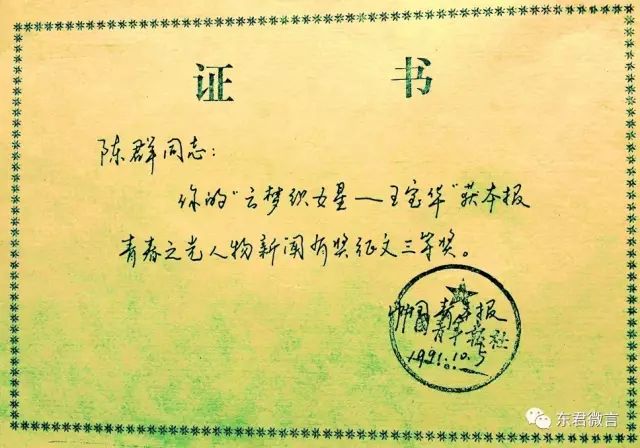 证 书
陈群同志：
你的“云梦织女星—王宝华”获本报
青春之光人物新闻有奖征文三等奖。
中国青年报
中国青年报社
1991.10.5
东君微言